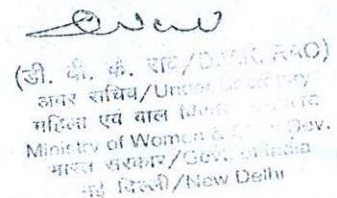 (डी. वी. के. राव/D.V.K. RAO)
अवर सचिव/Under Secretary
महिला एवं बाल
Ministry of Women & Dev.
भारत सरकार/Govt. of India
नई दिल्ली/New Delhi